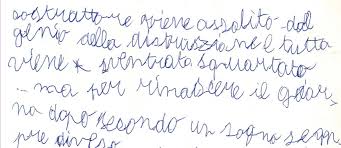 costruttore viene assalito dal
genio della distruzione e tutto
viene sventrato squartato
... ma per rinascere il gior
no dopo secondo un sogno sem
pre diverso